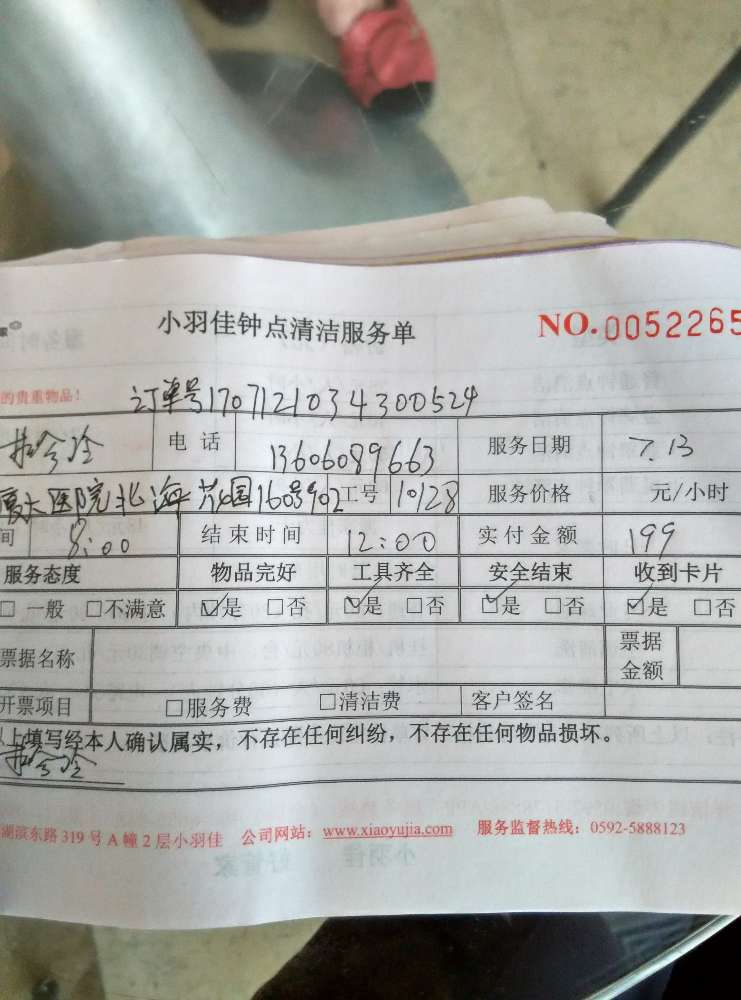 小羽佳钟点清洁服务单 NO.0052265
的贵重物品! 订单号1707121034300524
冷 电话 13606089663 服务日期 7.13
厦大医院北海花园160号902 工号 10128 服务价格 元/小时
间 8:00 结束时间 12:00 实付金额 199
服务态度 物品完好 工具齐全 安全结束 收到卡片
□ 一般 □不满意 ☑是 □否 ☑是 □否 ☑是 □否 ☑是 □否
票据名称 票据金额
开票项目 □服务费 □清洁费 客户签名
以上填写经本人确认属实，不存在任何纠纷，不存在任何物品损坏。
湖滨东路 319 号 A 幢 2 层小羽佳 公司网站：www.xiaoyujia.com 服务监督热线：0592-5888123